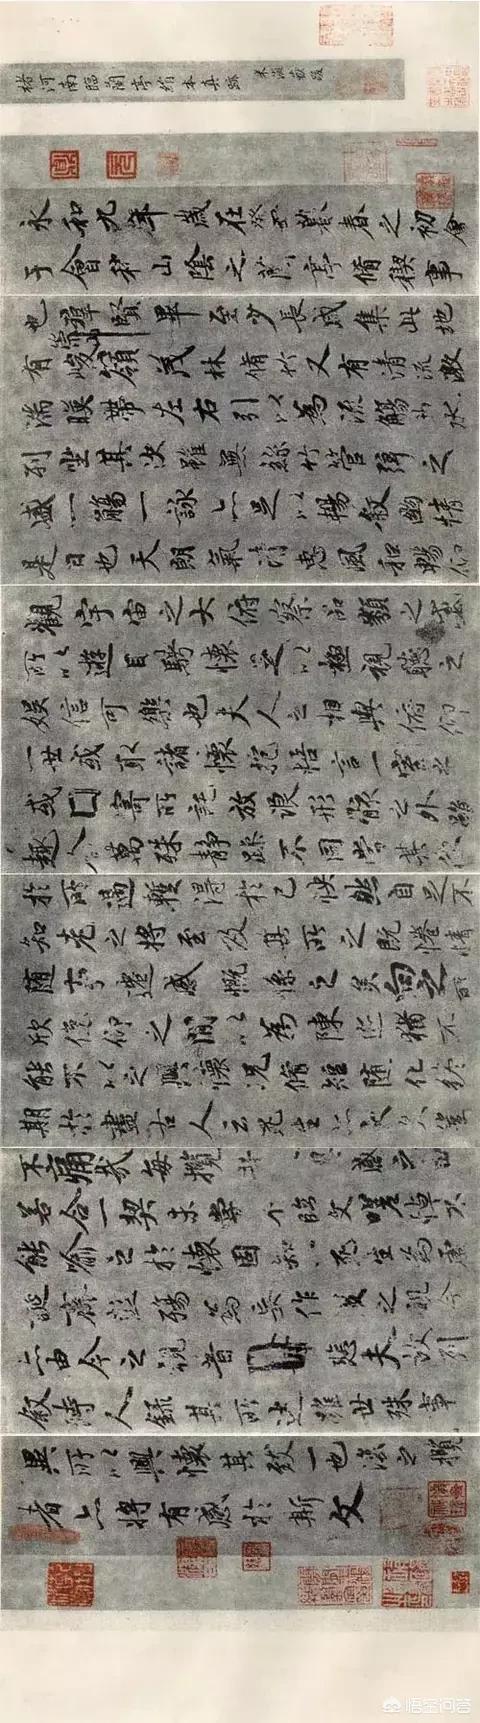 褚河南臨蘭亭絹本真跡
永和九年歲在癸丑暮春之初會
于會稽山陰之蘭亭脩禊事
也群賢畢至少長咸集此地
有崇山峻嶺茂林脩竹又有清流激
湍暎帶左右引以為流觴曲水
列坐其次雖無絲竹管弦之
盛一觴一詠亦足以暢敘幽情
是日也天朗氣清惠風和暢仰
觀宇宙之大俯察品類之盛
所以遊目騁懷足以極視聽之
娛信可樂也夫人之相與俯仰
一世或取諸懷抱悟言一室之內
或因寄所託放浪形骸之外雖
趣舍萬殊靜躁不同當其欣
於所遇暫得於己怏然自足不
知老之將至及其所之既惓情
隨事遷感慨係之矣向之所
欣俛仰之閒以為陳迹猶不
能不以之興懷況脩短隨化終
期於盡古人云死生亦大矣豈
不痛哉每攬昔人興感之由
若合一契未嘗不臨文嗟悼不
能喻之於懷固知一死生為虛
誕齊彭殤為妄作後之視今
亦由今之視昔悲夫故列
敘時人錄其所述雖世殊事
異所以興懷其致一也後之攬
者亦將有感於斯文
悟空问答